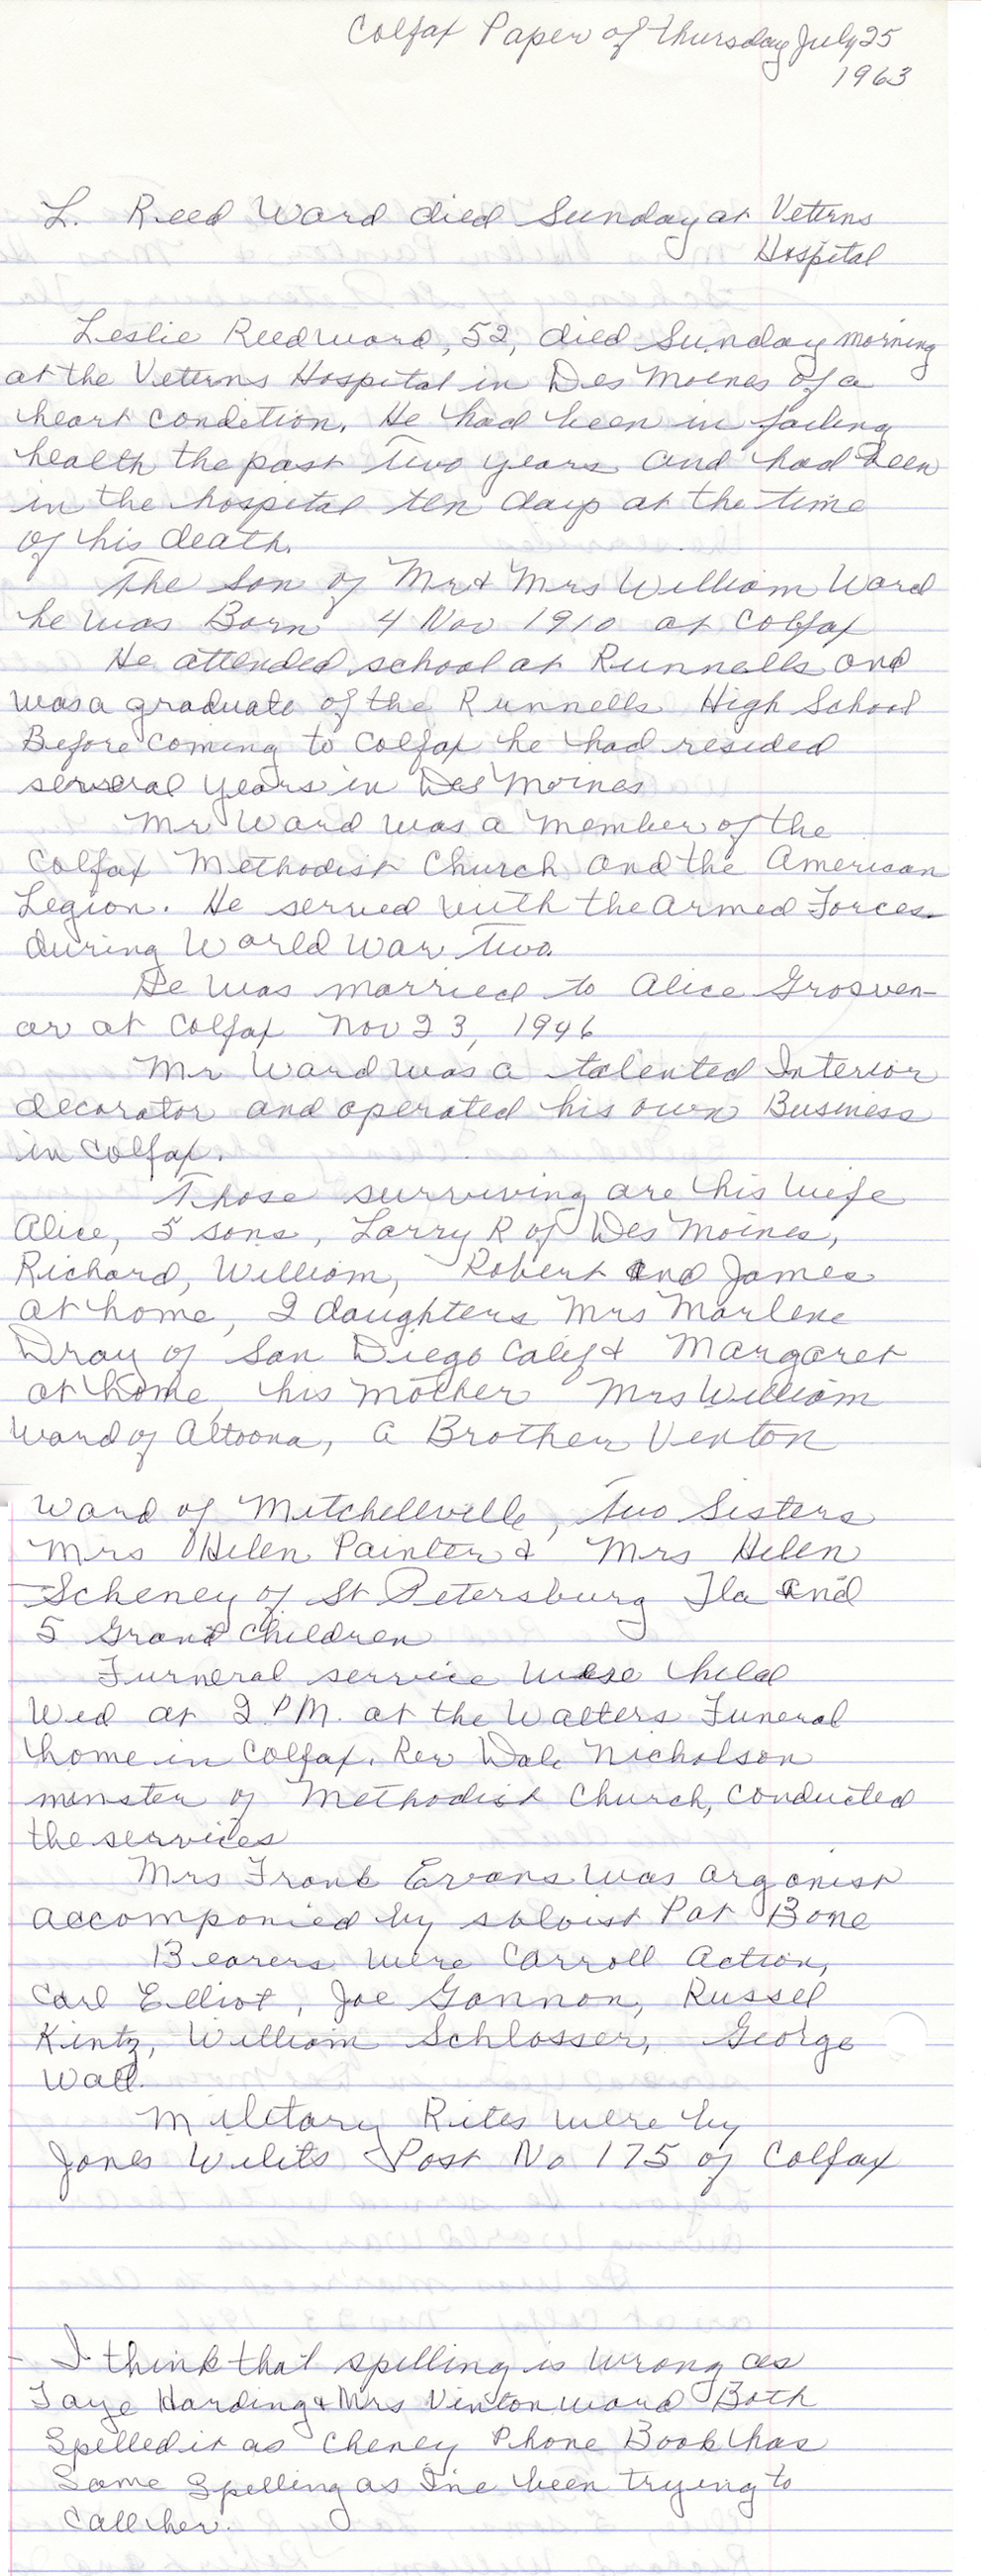 Colfax Paper of Thursday July 25
1963
L. Reed Ward died Sunday at Veterns
Hospital
Leslie Reed Ward, 52, died Sunday morning
at the Veterns Hospital in Des Moines of a
heart condition. He had been in failing
health the past Two years and had been
in the hospital ten days at the time
of his death.
The son of Mr & Mrs William Ward
he was Born 4 Nov 1910 at Colfax
He attended school at Runnells and
was a graduate of the Runnells High School
Before coming to Colfax he had resided
serveral years in Des Moines
Mr Ward was a member of the
Colfax Methodist Church and the American
Legion. He served with the Armed Forces
during World War Two.
He was married to Alice Grosven-
or at Colfax Nov 23, 1946
Mr Ward was a talented Interior
decorator and operated his own Business
in Colfax.
Those surviving are his wife
Alice, 5 sons, Larry R of Des Moines,
Richard, William, Robert and James
at home, 2 daughters Mrs Marlene
Dray of San Diego Calif & Margaret
at home, his mother Mrs William
Ward of Altoona, a Brother Venton
Ward of Mitchellville, two Sisters
Mrs Helen Painter & Mrs Helen
Scheney of St Petersburg Fla and
5 Grand Children
Furneral service were held
Wed at 2 PM. at the Walters Funeral
home in Colfax. Rev Dale Nicholson
minster of Methodist Church, conducted
the services
Mrs Frank Evans was organist
accomponied by soloist Pat Bone
Bearers were Carroll Action,
Carl Elliot, Joe Gannon, Russel
Kintz, William Schlosser, George
Wall.
Military Rites were by
Jones Wilits Post No 175 of Colfax
I think that spelling is wrong as
Faye Harding & Mrs Vinton Ward Both
Spelled it as Cheney Phone Book has
Same Spelling as I've been trying to
call her.